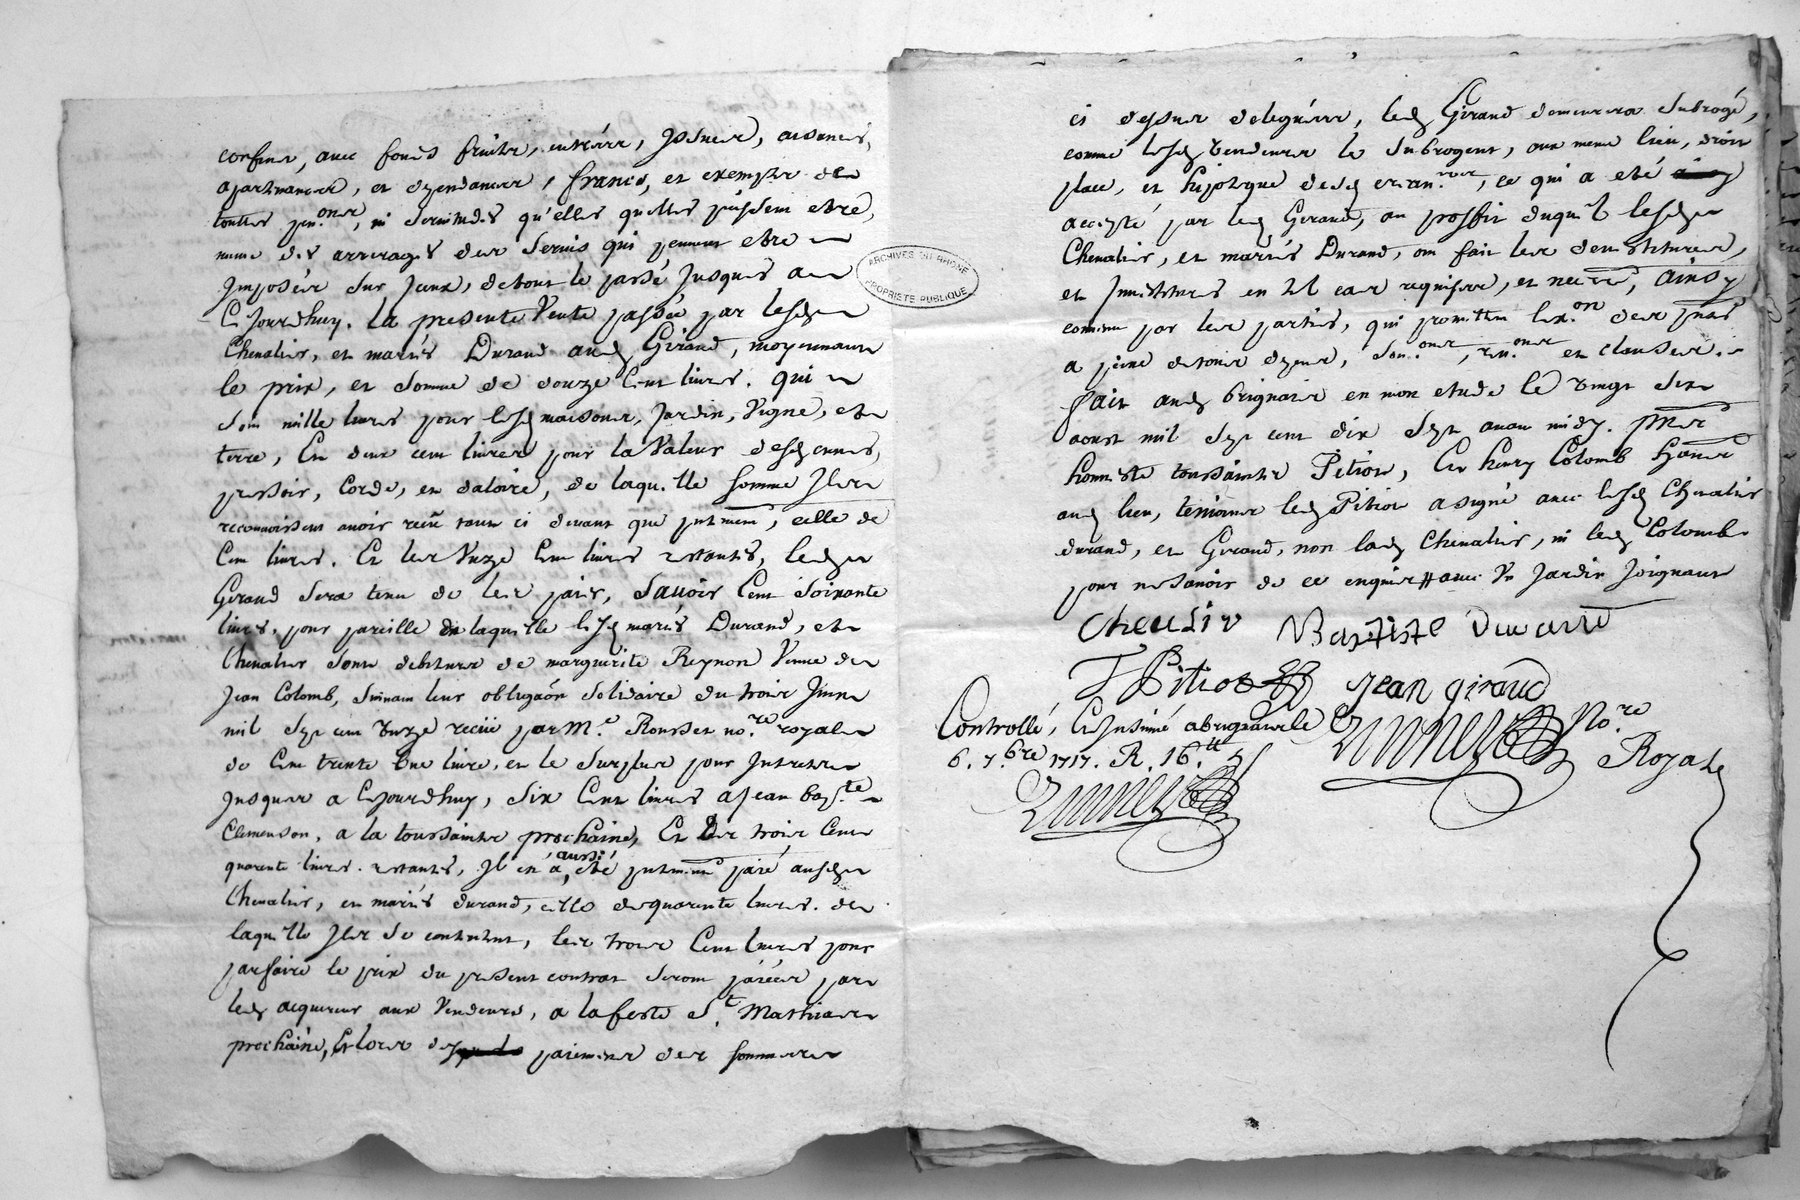 confins, avec fonds fruits, entrées, Issues, aisances,
apartenances, et dependances, francs, et exempts de
touttes pen.ons, ni servitudes qu'elles quelles puissent etre,
meme des arrerages des servis qui peuvent etre
Imposés sur Jeux, detout le passé Jusques a
Ce Jourdhuy. La presente Vente passée par lesd
Chevalier, et mariés Durand aud Giraud, moyennant
le prix, et somme de douze Cent livres. qui
son mille livres pour lesd maisons, Jardin, Vigne, et
terre, Et deux cent livres pour la Valeur desd cuves,
pressoir, Corde, et daloire, de laquelle somme Ils
reconnoissent avoir reçu tant ci devant que pntment, celle de
Cent livres. Et les Unze Cent livres restantes, led
Giraud sera tenu de les païer, Sauoir Cent Soixante
livres, pour pareille de laquelle lesd mariés Durand, et
Chevalier sont debiteurs de marguerite Reynon Veuve de
Jean Colomb, suivant leur obligaôn solidaire du trois Juin
mil sept cent Unze reciüe par M.e Rousset no.re royal
de Cent trente Une livre, et le surplus pour Interets
Jusques a CeJourdhuy, Six Cent livres a Jean bap.te
Clemenson, a la toussaints prochaine, Et Les trois Cent
quarente livres restantes, Il en a, eté pntment païé auxd
aussi
Chevalier, et mariés durand, celle de quarente livres. de
laquelle Ils se contentent, les trois Cent livres pour
parfaire le prix du present contrat seront païées par
led acquereur aux Vendeurs, a la feste S.t Mathias
prochaine, Et lors des paiements des sommes
ARCHIVES DU RHONE
PROPRIETE PUBLIQUE
ci dessus deleguées, led Giraud demeurera subrogé,
comme lesd Vendeurs le subrogent, aux meme lieu, droit
place, et hipoteque desd crean.iers, ce qui a eté
accepté par led Giraud, au proffit duquel lesd
Chevalier, et mariés Durand, ont fait les devestitures,
et Investitures en tel cas requises, et necres, ainsy
convenu par les parties, qui promettent lex.on des pntes
a peine detous depens, Soû.ons, ren.ons et clauses.
fait aud brignais en mon etude le Vingt six
aoust mil sept cent dix sept avant midy. Pnts
honneste toussaints Pition, Et henry Colomb
aud lieu, temoins led Pition a signé avec lesd Chevalier
durand, et Giraud, non lad Chevalier, ni led Colomb
pour ne savoir de ce enquis # avec Un Jardin Joignant
Cheualir Baptiste Durand
T Pition Jean giraud
Controllé, Et Insinué abrignais le
6. 7.bre 1717. R. 16.tt
No.re
Royal